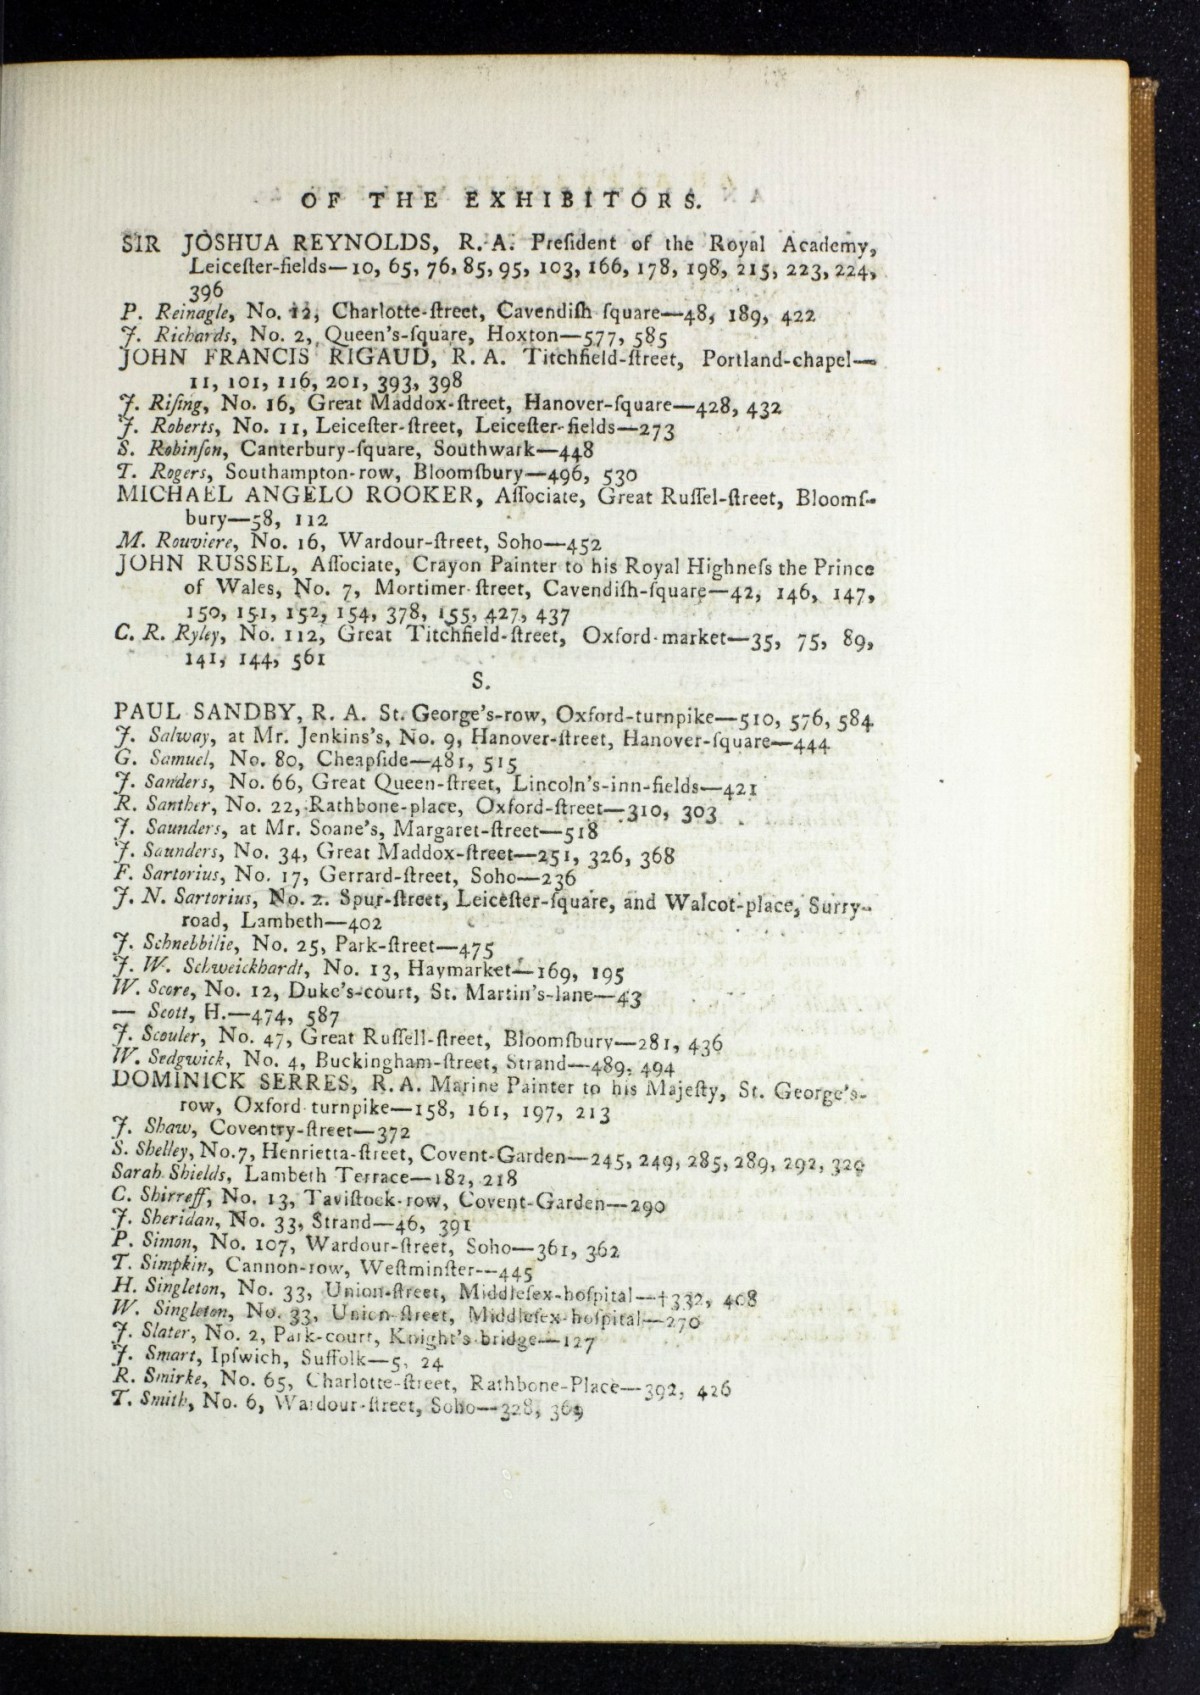 OF THE EXHIBITORS.
SIR JOSHUA REYNOLDS, R. A. Preſident of the Royal Academy,
Leiceſter-fields—10, 65, 76, 85, 95, 103, 166, 178, 198, 215, 223, 224,
396
P. Reinagle, No. 12, Charlotte-ſtreet, Cavendiſh ſquare—48, 189, 422
J. Richards, No. 2, Queen's-ſquare, Hoxton—577, 585
JOHN FRANCIS RIGAUD, R. A. Titchfield-ſtreet, Portland-chapel—
11, 101, 116, 201, 393, 398
J. Riſing, No. 16, Great Maddox-ſtreet, Hanover-ſquare—428, 432
J. Roberts, No. 11, Leiceſter-ſtreet, Leiceſter-fields—273
S. Robinſon, Canterbury-ſquare, Southwark—448
T. Rogers, Southampton-row, Bloomſbury—496, 530
MICHAEL ANGELO ROOKER, Aſſociate, Great Ruſſel-ſtreet, Bloomſ-
bury—58, 112
M. Rouviere, No. 16, Wardour-ſtreet, Soho—452
JOHN RUSSEL, Aſſociate, Crayon Painter to his Royal Highneſs the Prince
of Wales, No. 7, Mortimer-ſtreet, Cavendiſh-ſquare—42, 146, 147,
150, 151, 152, 154, 378, 155, 427, 437
C. R. Ryley, No. 112, Great Titchfield-ſtreet, Oxford-market—35, 75, 89,
141, 144, 561
S.
PAUL SANDBY, R. A. St. George's-row, Oxford-turnpike—510, 576, 584
J. Salway, at Mr. Jenkins's, No. 9, Hanover-ſtreet, Hanover-ſquare—444
G. Samuel, No. 80, Cheapſide—481, 515
J. Sanders, No. 66, Great Queen-ſtreet, Lincoln's-inn-fields—421
R. Santher, No. 22, Rathbone-place, Oxford-ſtreet—310, 303
J. Saunders, at Mr. Soane's, Margaret-ſtreet—518
J. Saunders, No. 34, Great Maddox-ſtreet—251, 326, 368
F. Sartorius, No. 17, Gerrard-ſtreet, Soho—236
J. N. Sartorius, No. 2. Spur-ſtreet, Leiceſter-ſquare, and Walcot-place, Surry-
road, Lambeth—402
J. Schnebbilie, No. 25, Park-ſtreet—475
J. W. Schweickhardt, No. 13, Haymarket—169, 195
W. Score, No. 12, Duke's-court, St. Martin's-lane—43
— Scott, H.—474, 587
J. Scouler, No. 47, Great Ruſſell-ſtreet, Bloomſbury—281, 436
W. Sedgwick, No. 4, Buckingham-ſtreet, Strand—489, 494
DOMINICK SERRES, R. A. Marine Painter to his Majeſty, St. George's-
row, Oxford turnpike—158, 161, 197, 213
J. Shaw, Coventry-ſtreet—372
S. Shelley, No. 7, Henrietta-ſtreet, Covent-Garden—245, 249, 285, 289, 292, 320
Sarah Shields, Lambeth Terrace—182, 218
C. Shirreff, No. 13, Taviſtock-row, Covent-Garden—290
J. Sheridan, No. 33, Strand—46, 391
P. Simon, No. 107, Wardour-ſtreet, Soho—361, 362
T. Simpkin, Cannon-row, Weſtminſter—445
H. Singleton, No. 33, Union-ſtreet, Middleſex-hoſpital—†332, 408
W. Singleton, No. 33, Union-ſtreet, Middleſex-hoſpital—270
J. Slater, No. 2, Park-court, Knight's-bridge—127
J. Smart, Ipſwich, Suffolk—5, 24
R. Smirke, No. 65, Charlotte-ſtreet, Rathbone-Place—392, 426
T. Smith, No. 6, Wardour-ſtreet, Soho—328, 369